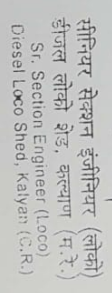 सीनियर सेक्शन इंजीनियर (लोको)
डीजल लोको शेड, कल्याण (म.रे.)
Sr. Section Engineer (Loco)
Diesel Loco Shed, Kalyan (C.R.)